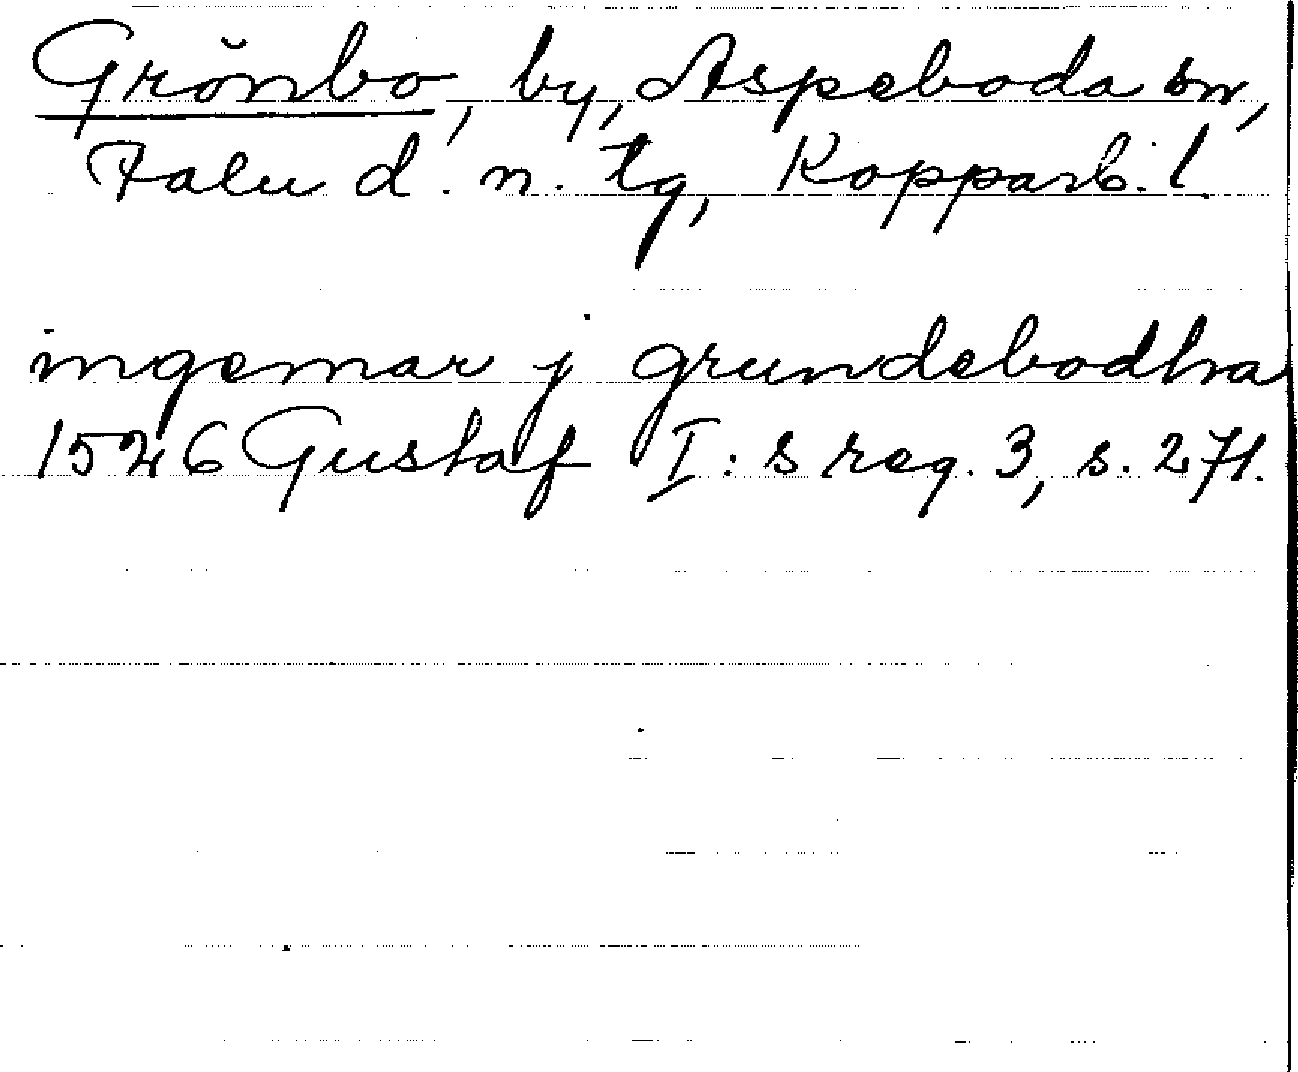 Grönbo, by, Aspeboda sn,
Falu d. n. tg, Kopparb. l.
ingemar j grundebodha
1526 Gustaf I:s reg. 3, s. 271.